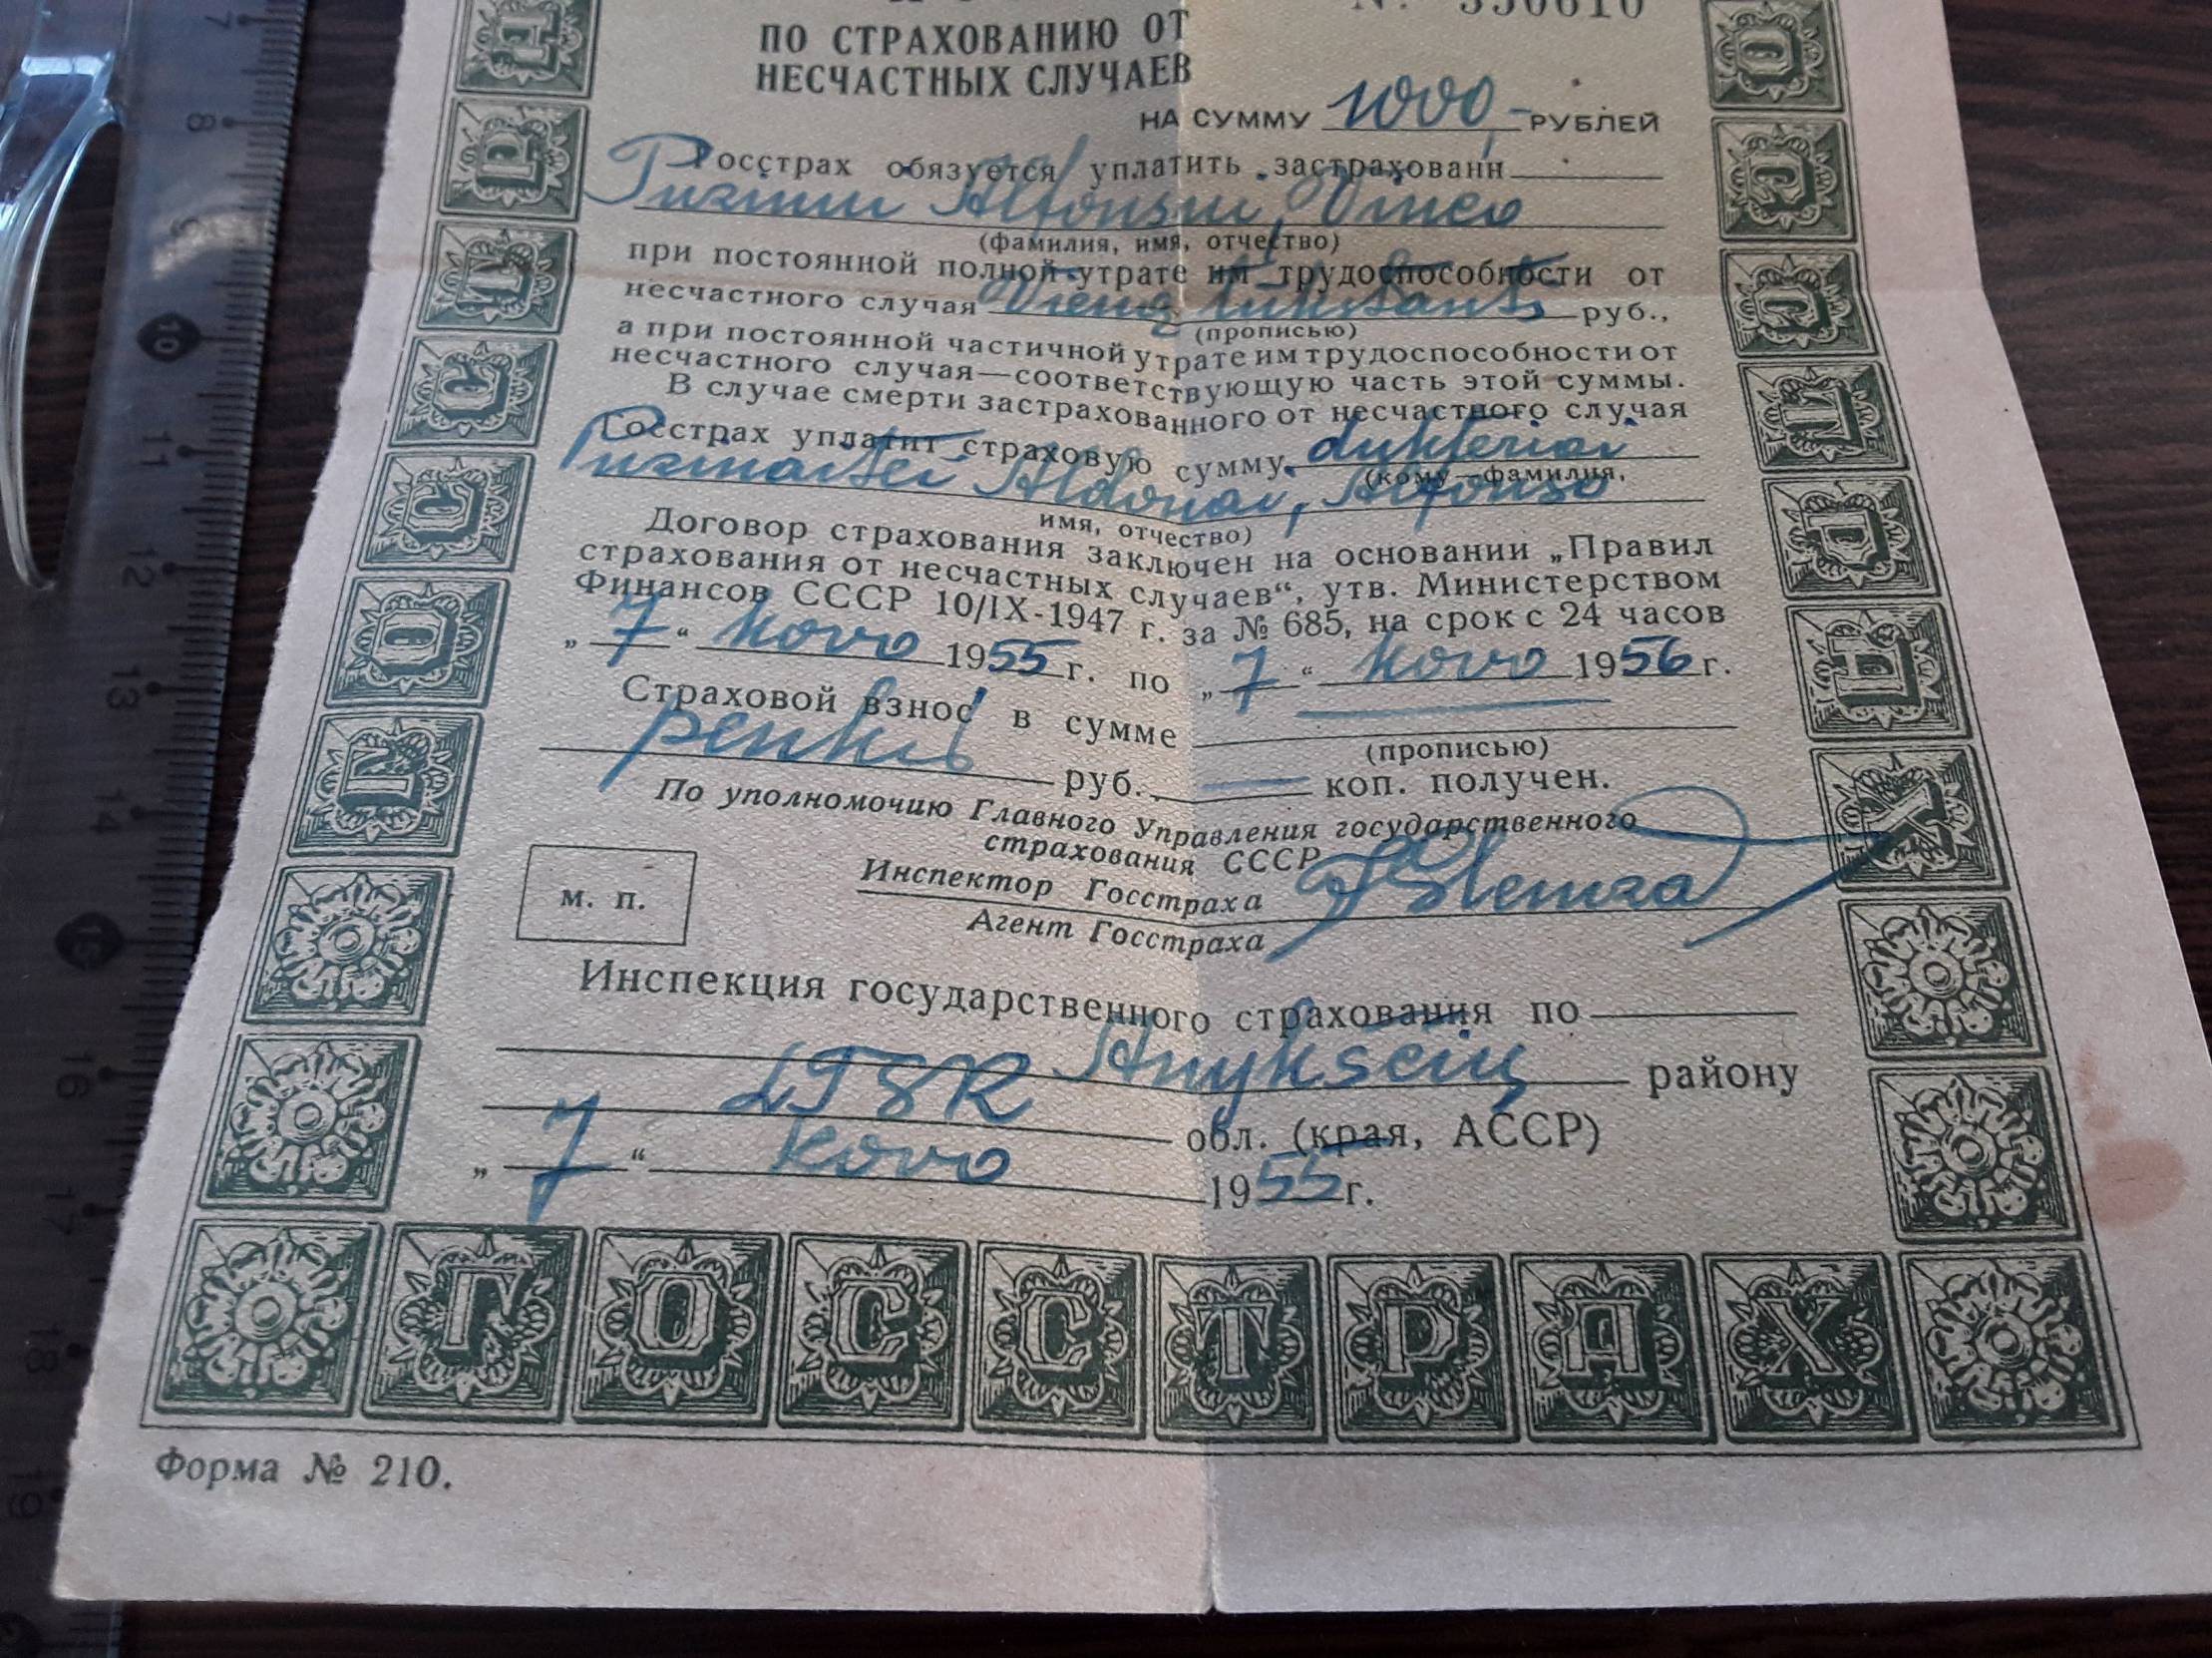 № 350610
ПО СТРАХОВАНИЮ ОТ
НЕСЧАСТНЫХ СЛУЧАЕВ
НА СУММУ 1000,- РУБЛЕЙ
Госстрах обязуется уплатить застрахованн
Alfonsui, Vinco
(фамилия, имя, отчество)
при постоянной полной утрате им трудоспособности от
несчастного случая Vieną tūkstantį руб.,
(прописью)
а при постоянной частичной утрате им трудоспособности от
несчастного случая—соответствующую часть этой суммы.
В случае смерти застрахованного от несчастного случая
Госстрах уплатит страховую сумму dukteriai
(кому—фамилия,
Aldonai, Alfonso
имя, отчество)
Договор страхования заключен на основании „Правил
страхования от несчастных случаев“, утв. Министерством
Финансов СССР 10/IX-1947 г. за № 685, на срок с 24 часов
„7“ kovo 1955 г. по „7“ kovo 1956 г.
Страховой взнос в сумме
(прописью)
penkis руб. — коп. получен.
По уполномочию Главного Управления государственного
страхования СССР
Инспектор Госстраха
Агент Госстраха
м. п.
Инспекция государственного страхования по
Anykščių району
LTSR обл. (края, АССР)
„7“ kovo 1955 г.
ГОССТРАХ
Форма № 210.